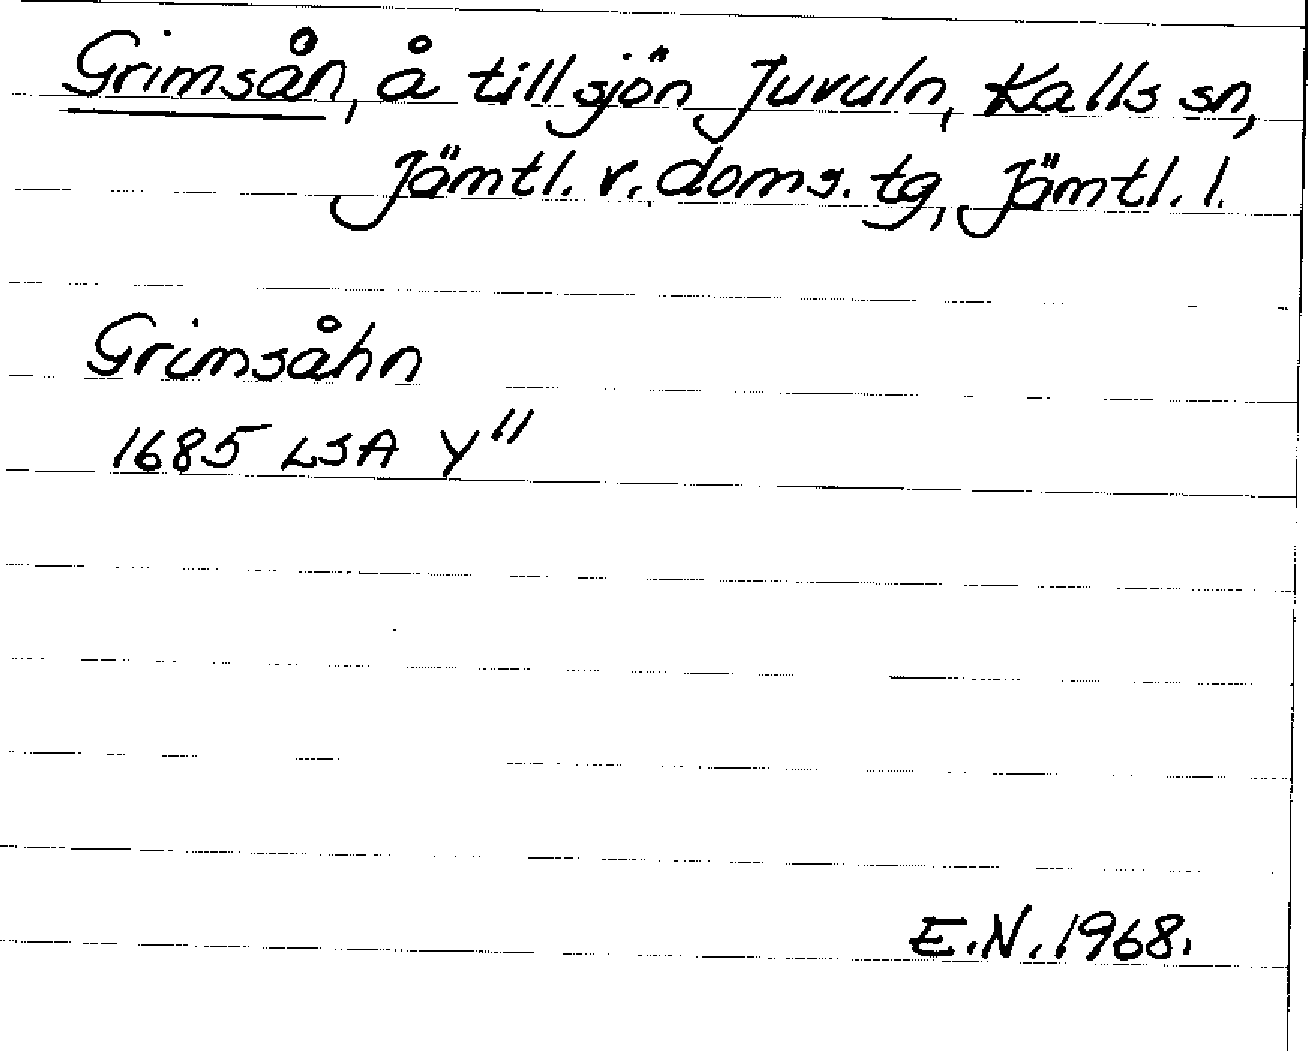 Grimsån, å till sjön Juvuln, Kalls sn,
Jämtl. v. doms. tg, Jämtl. l.
Grimsåhn
1685 LSA Y"
E.N. 1968.